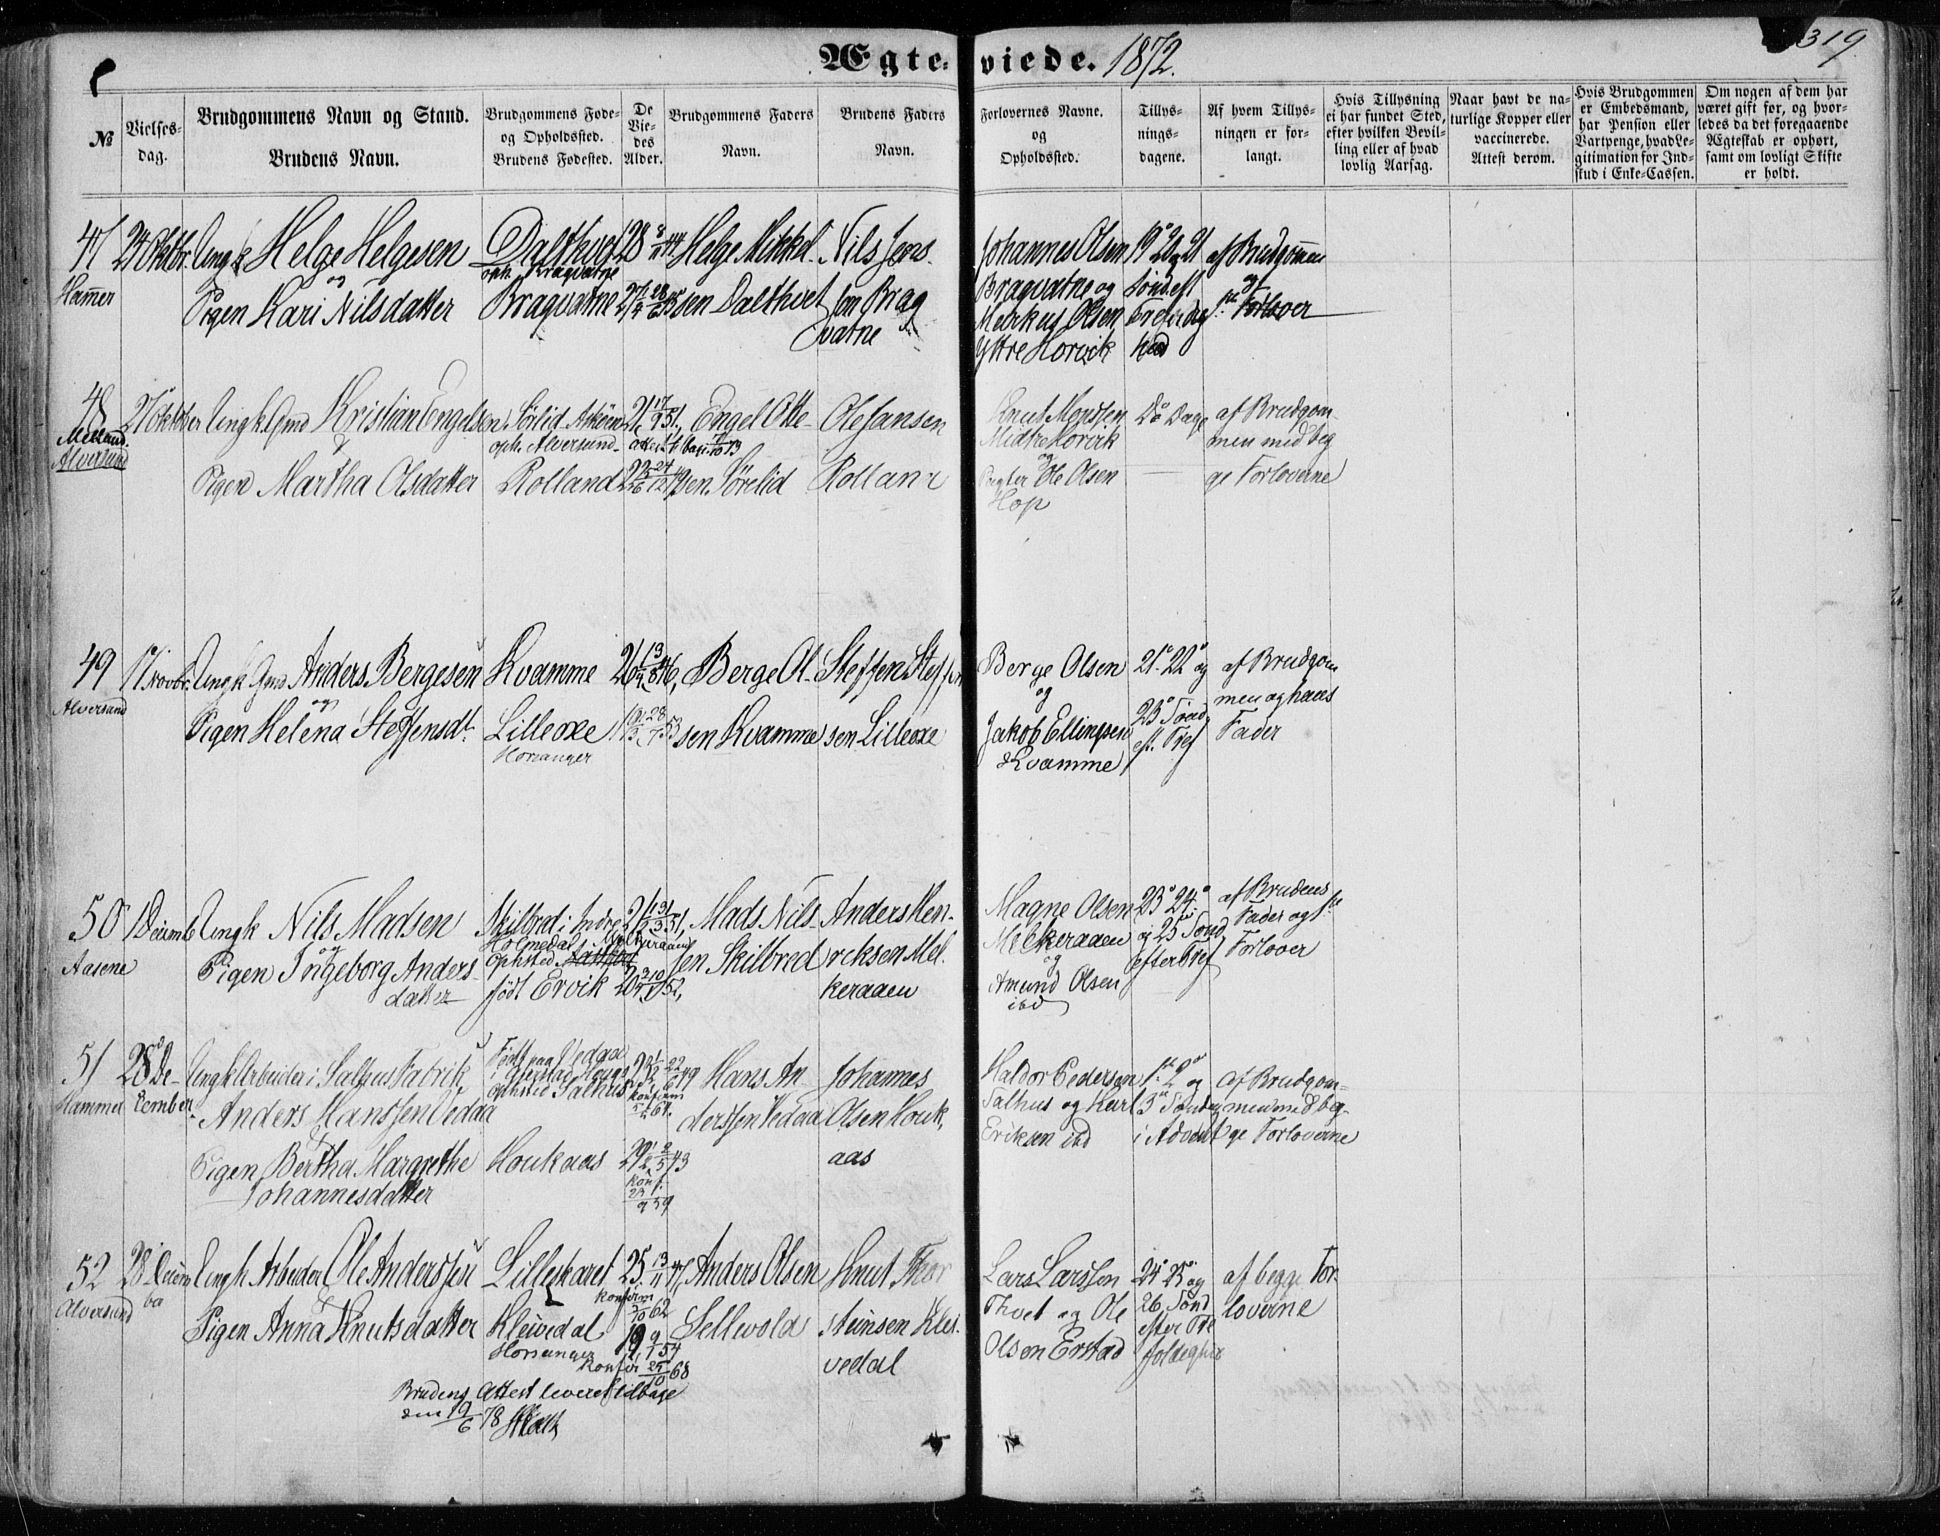 319.
Ægteviede. 1872.
№
Vielses-dag.
Brudgommens Navn og Stand.
Brudens Navn.
Brudgommens Føde-
og Opholdssted.
Brudens Fødested.
De
Vie-
des
Alder.
Brudgommens Faders
Navn.
Brudens Faders
Navn.
Forlovernes Navne.
og
Opholdssted.
Tillys-
nings-
dagene.
Af hvem Tillys-
ningen er for-
langt.
Hvis Tillysning
ei har fundet Sted,
efter hvilken Bevil-
ling eller af hvad
lovlig Aarsag.
Naar havt de na-
turlige Kopper eller
vaccinerede.
Attest derom.
Hvis Brudgommen
er Embedsmand,
har Pension eller
Vartpenge, hvad Le-
gitimation for Ind-
skud i Enke-Cassen.
Om nogen af dem har
været gift før, og hvor-
ledes da det foregaaende
Ægteskab er ophørt,
samt om lovligt Skifte
er holdt.
47
Hamer
24 Oktbr.
Ungk Helge Helgesen
og
Pigen Kari Nilsdatter
Dalthvet
oph. Bragvatne
Bragvatne
28 8/11 44
27 28/6 45
Helge Mikkel-
sen Dalthvet
Nils Jens
sen Brag
vatne
Johannes Olsen
Bragvatne og
Markus Olsen
Ytre Horvik
19 20 og 21
Sønd. eft
Trefoldig
hed
af Brudgommen
og
1ste Forlover
48
Melland.
Alversund
27 Oktober
Ungk. Gmd Kristian Engelsen
&
Pigen Martha Olsdatter
Sørlid Askøen
oph. Alversund
Rolland
21 17/9 51,
Attest tilbage 17/10 73
22 24/12 49
Engel Otte-
sen Sørelid
Ole Jansen
Rolland
Knut Monssen
Midtre Horvik
og
Pagter Ole Olsen
Hop
Do Dage
af Brudgom
men med beg
ge Forloverne
49
Alversund
17 Novbr.
Ungk Gmd Anders Bergesen
og
Pigen Helena Steffensdt.
Kvamme
Lilleoxe
Hosanger
26 13/8 46,
19 28/7 53
Berge Ol-
sen Kvamme
Steffen Steffen
sen Lilleoxe
Berge Olsen
og
Jakob Ellingsen
Kvamme
21. 22 og
23 Sønd
eft. Tref
af Brudgom
men og hans
Fader
50
Aasene
1 Decemb
Ungk Nils Madsen
og
Pigen Ingeborg Anders-
datter
Skilbred i Indre
Holmedal
Ophsted
født Ervik
21 31/3 51,
20 10/1 52,
Mads Nils-
sen Skilbred
Anders Hen-
riksen Mel-
keraaen
Magne Olsen
Melkeraaen
og
Amund Olsen
ibd
23 24.
og 25 Sønd
efter Tref
af Brudens
Fader og 1ste
Forlover
51
Hammer
28 De-
cember
Ungk Arbeider i Salhus Fabrik,
Anders Hanssen Vedaa
&
Pigen Bertha Margrethe
Johannesdatter
Født paa Vedaa
i Haus
ophsted Salhus
Houkaas
22/6 49
konfirm
64.
29 2/5 43
Konf.
23/9 59
Hans An-
derssen Vedaa
Johannes
Olsen Houk,
aas
Haldor Pedersen
Salhus og Karl
Eriksen ibd
1ste. 2 og
3die Søndag
i Advent
af Brudgom-
men med beg-
ge Forloverne
52
Alversund
28 Decem
ber
Ungk Arbeider Ole Anderssen
&
Pigen Anna Knutsdatter
Lilleskaret
Kleivedal
Hosanger
25 13/11 47
konfirm
5/10 62
19 9/1 54
Konfir 25/10 68
Anders Olsen
Sellevold
Knut Thor
steinsen Klei-
vedal
Lars Larssen
Thvet og Ole
Olsen Erstad
24 25 og
26 Sønd
efter Tre
foldighed
af begge For-
loverne
Brudens Attest leveret tilbage
den 19/6 78